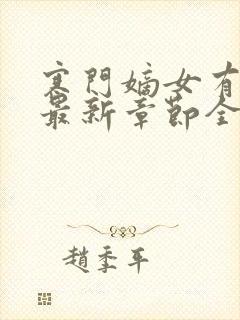 寒门嫡女有
最新章節全
趙季平